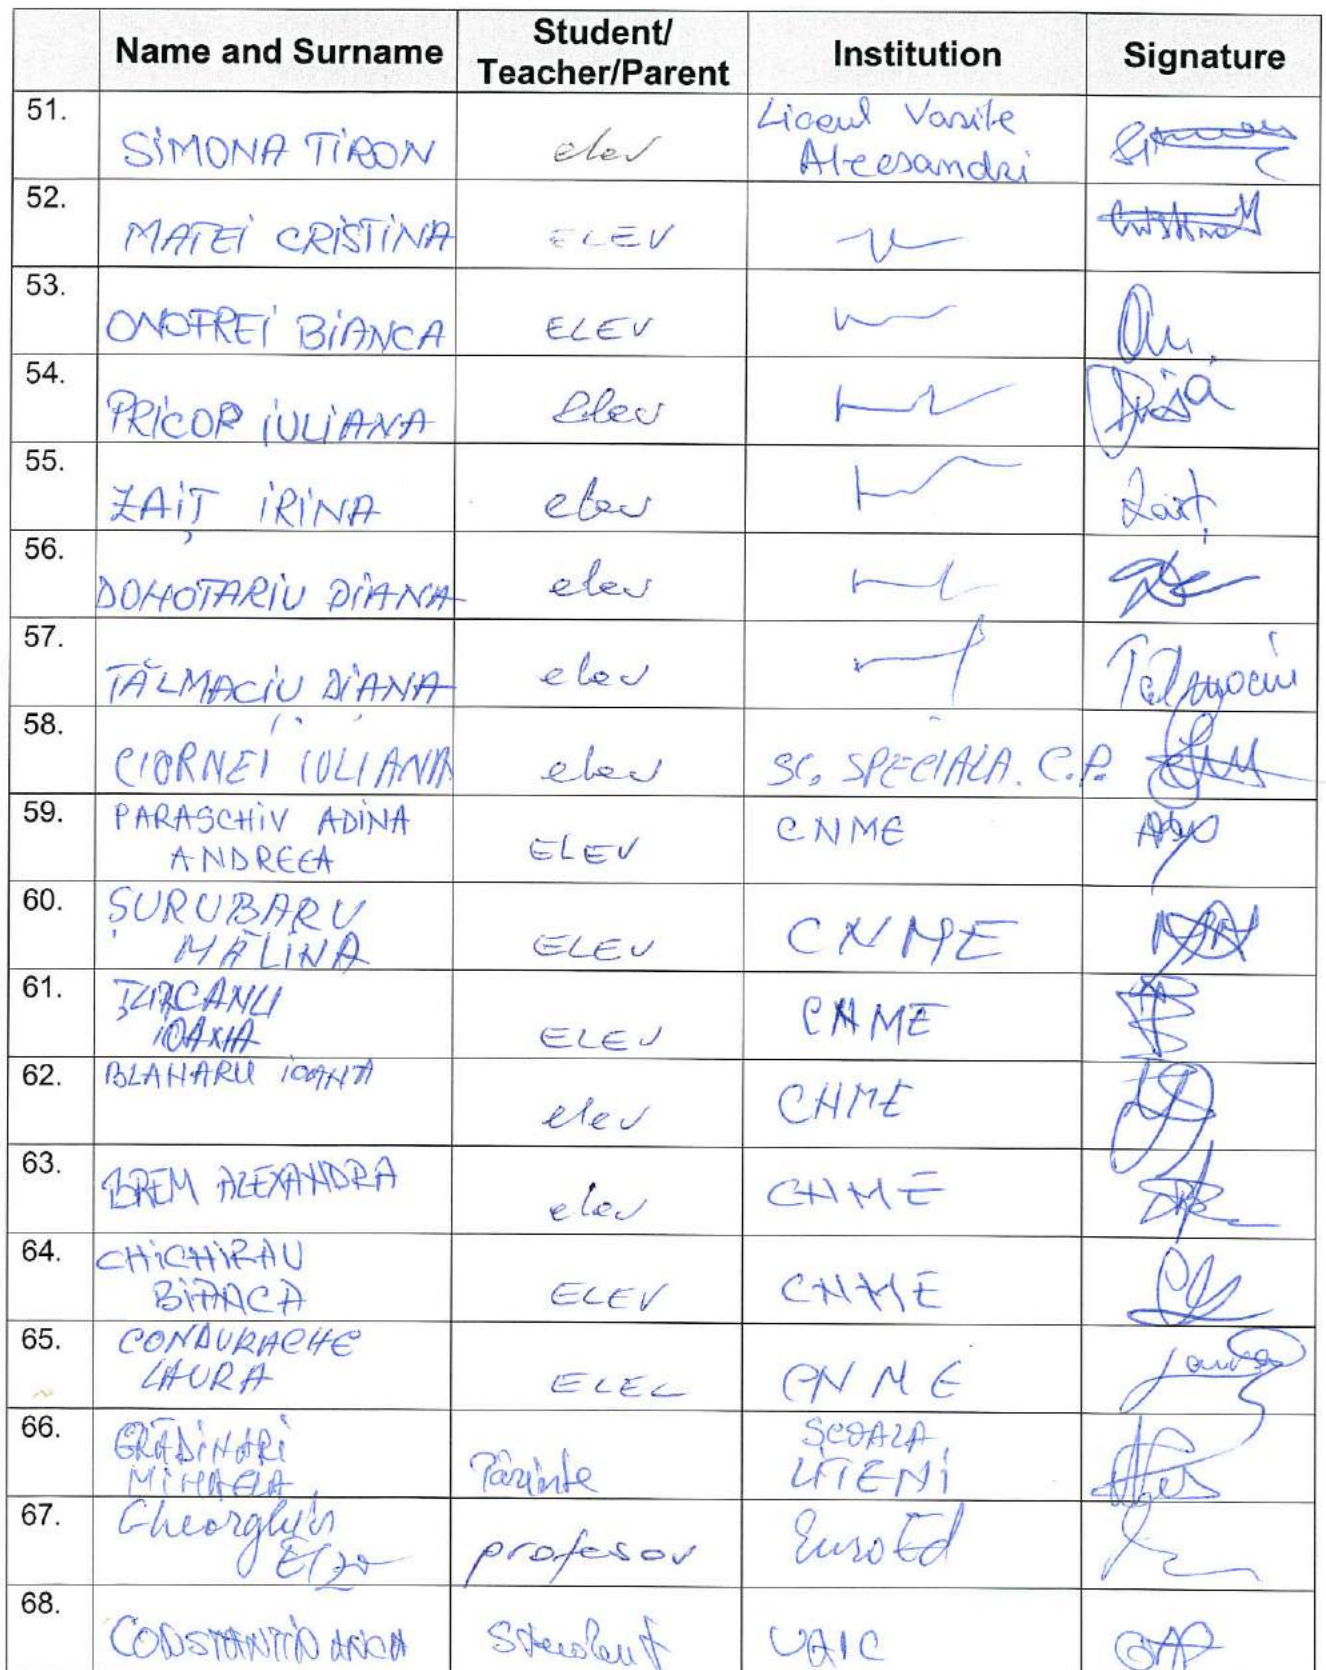 Name and Surname
Student/
Teacher/Parent
Institution
Signature
51.
SIMONA TIRON
elev
Liceul Vasile
Alecsandri
52.
MATEI CRISTINA
ELEV
53.
ONOFREI BIANCA
ELEV
54.
PRICOP IULIANA
Elev
55.
ZAIȚ IRINA
elev
Zaiț
56.
DOHOTARIU DIANA
elev
57.
TĂLMACIU DIANA
elev
Tălmaciu
58.
CIORNEI IULIANA
elev
SC. SPECIALA. C.P.
59.
PARASCHIV ADINA
ANDREEA
ELEV
CNME
60.
ȘURUBARU
MĂLINA
ELEV
CNME
61.
ȚURCANU
IOANA
ELEV
CNME
62.
BLANARU IOANA
elev
CNME
63.
BREM ALEXANDRA
elev
CNME
64.
CHICHIRĂU
BIANCA
ELEV
CNME
65.
CONDURACHE
LAURA
ELEV
CNME
66.
GRĂDINARI
MIHAELA
Părinte
ȘCOALA
LITENI
67.
Gheorghiu
profesor
EuroEd
68.
CONSTANTIN ANCA
Student
UAIC